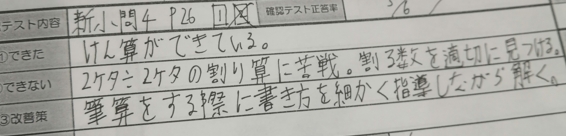 テスト内容 新小問4 P26 11 確認テスト正答率 /6
①できた けん算ができている。
②できない 2ケタ÷2ケタの割り算に苦戦。割る数を適切に見つける。
③改善策 筆算をする際に書き方を細かく指導しながら解く。